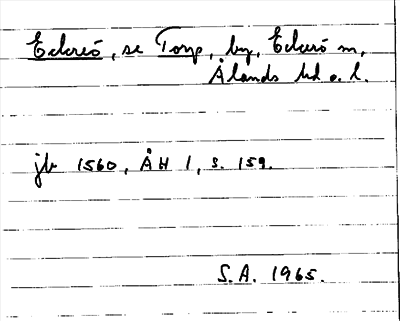 Eckerö, se Torp, by, Eckerö sn,
Ålands hd o. l.
jb 1560, ÅH 1, s. 159.
S.A. 1965.